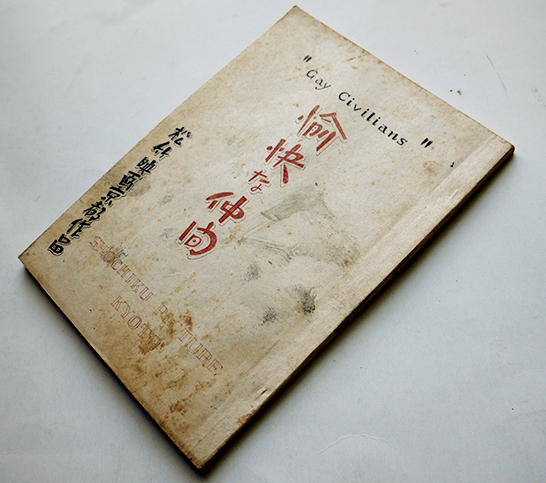 "Gay Civilians"
愉快な仲間
松竹映画京都作品
SHOCHIKU PICTURE
KYOTO